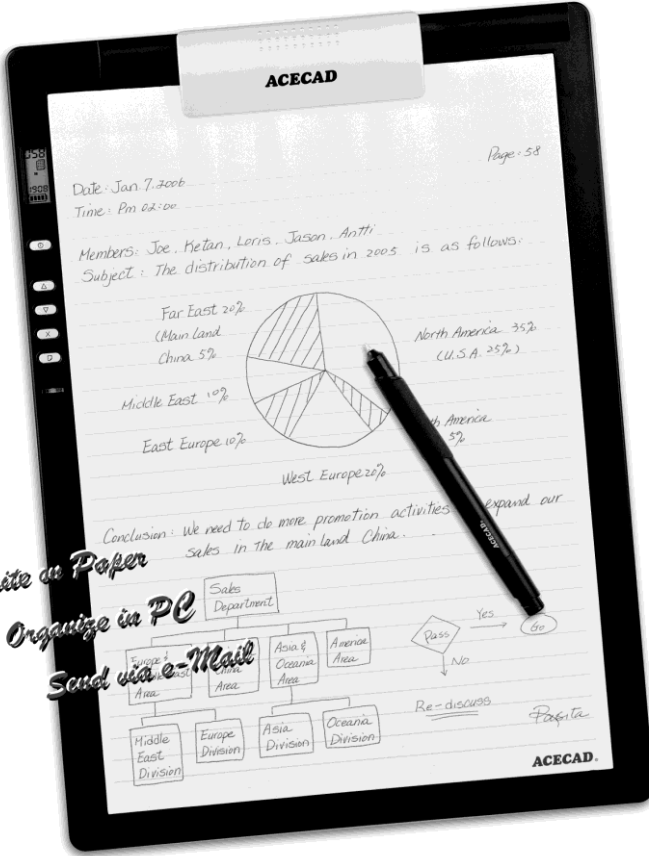 ACECAD
Page: 58
Date: Jan 7. 2006
Time: Pm 02:00
Members: Joe. Ketan, Loris. Jason. Antti
Subject: The distribution of sales in 2005 is as follows:
Far East 20%
(Main land
China 5%
North America 35%
(U.S.A. 25%)
Middle East 10%
America
5%
East Europe 10%
West Europe 20%
Conclusion: We need to do more promotion activities expand our
sales in the main land China.
Write in Paper
Organize in PC
Send via e-Mail
Sales
Department
Europe &
Area
China
Area
Asia &
Oceania
Area
America
Area
Middle
East
Division
Europe
Division
Asia
Division
Oceania
Division
Pass
Yes
Go
No
Re-discuss
ACECAD.
ACECAD.